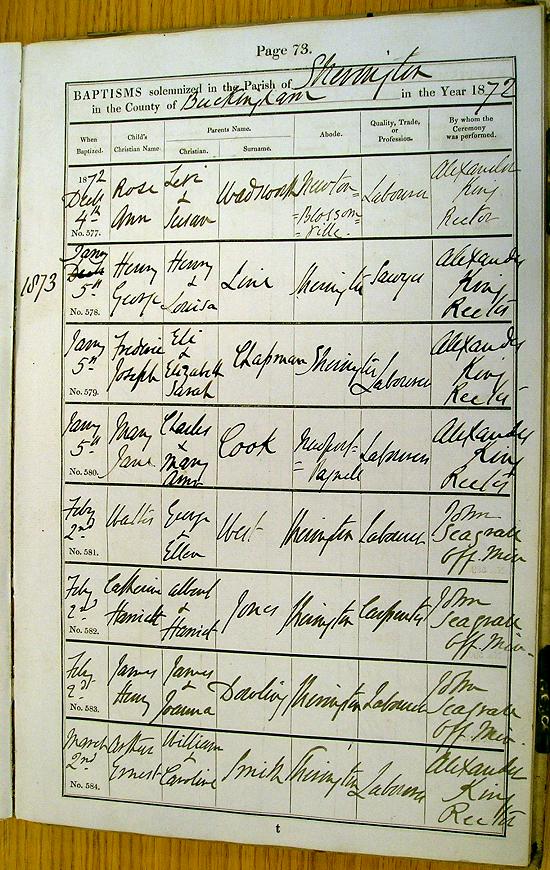 Page 73.
BAPTISMS solemnized in the Parish of Sherington
in the County of Buckingham in the Year 1872
When Baptized. Child's Christian Name. Parents Name. Christian. Surname. Abode. Quality, Trade, or Profession. By whom the Ceremony was performed.
1872 Decr 4th No. 577. Rose Ann Levi & Susan Wadsworth Newton=Blossom=ville. Labourer Alexander King Rector
1873 Jany 5th No. 578. Henry George Henry & Louisa Line Sherington Sawyer Alexander King Rector
Jany 5th No. 579. Frederic Joseph Eli & Elizabeth Sarah Chapman Sherington Labourer Alexander King Rector
Jany 5th No. 580. Mary Jane Charles & Mary Ann Cook Newport=Pagnell Labourer Alexander King Rector
Feby 2nd No. 581. Walter George & Ellen West Sherington Labourer John Seagrave Off. Min.
Feby 2nd No. 582. Catherine Harriett Albert & Harriet Jones Sherington Carpenter John Seagrave Off. Min.
Feby 2d No. 583. James Henry James & Joanna Dowling Sherington Labourer John Seagrave Off. Min.
March 2nd No. 584. Arthur Ernest William & Caroline Smith Sherington Labourer Alexander King Rector
t